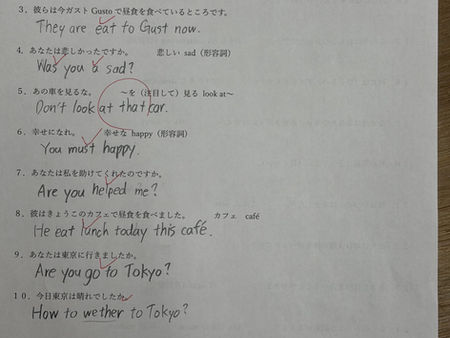 3．彼らは今ガスト Gusto で昼食を食べているところです。
They are eat to Gust now.
4．あなたは悲しかったですか。 悲しい sad（形容詞）
Was you a sad?
5．あの車を見るな。 ～を（注目して）見る look at～
Don't look at that car.
6．幸せになれ。 幸せな happy（形容詞）
You must happy.
7．あなたは私を助けてくれたのですか。
Are you helped me?
8．彼はきょうこのカフェで昼食を食べました。 カフェ café
He eat lunch today this café.
9．あなたは東京に行きましたか。
Are you go to Tokyo?
10．今日東京は晴れでしたか。
How to wether to Tokyo?